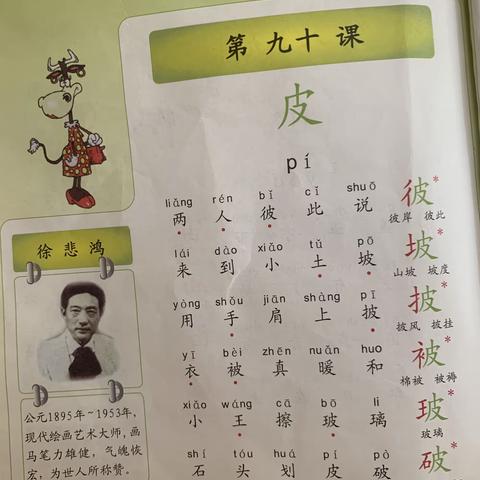 第九十课
皮
pí
liǎng rén bǐ cǐ shuō
两人彼此说
彼*
彼岸 彼此
lái dào xiǎo tǔ pō
来到小土坡
坡*
山坡 坡度
yòng shǒu jiān shàng pī
用手肩上披
披*
披风 披挂
yī bèi zhēn nuǎn huo
衣被真暖和
被*
棉被 被褥
xiǎo wáng cā bō li
小王擦玻璃
玻*
玻璃
shí tóu huá pí pò
石头划皮破
破*
徐悲鸿
公元1895年~1953年,
现代绘画艺术大师,画
马笔力雄健,气魄恢
宏,为世人所称赞。